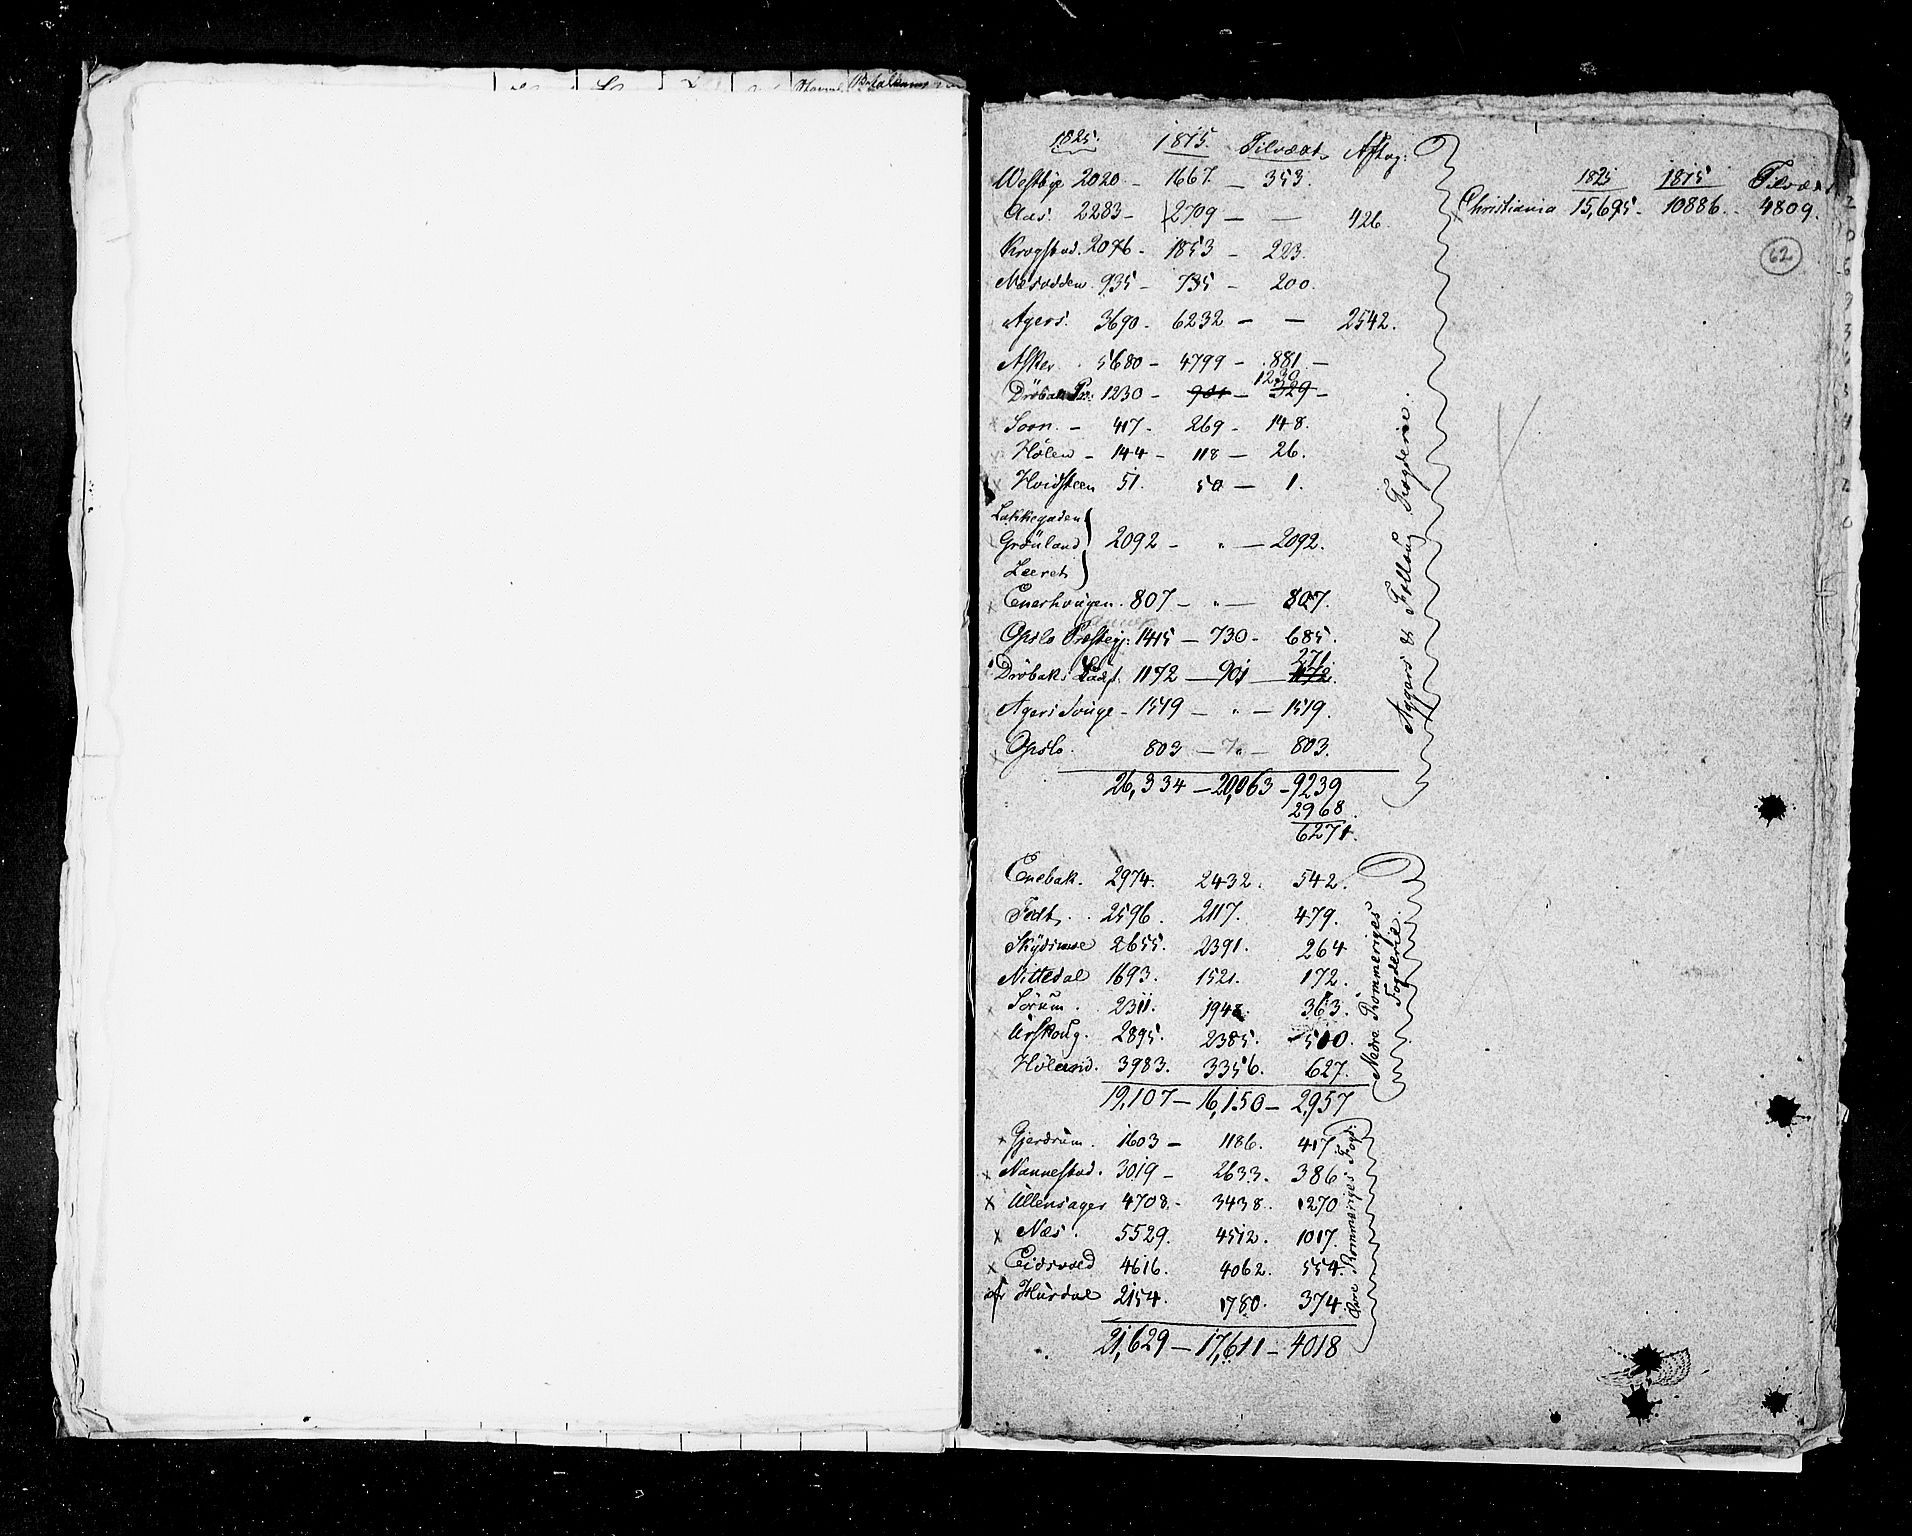 1825. 1815. Tilvæxt. Aftag:
Westbye 2020 - 1667. - 353.
Aas. 2283 - 2709 - - 426.
Krogstad. 2076 - 1853 - 223.
Næsodden. 935 - 735 - 200.
Agers. 3690. 6232 - - 2542.
Asker. 5680 - 4799 - 881 -
1230
Dröbak Pr: 1230 - 901 - 329 -
Soon. - 417. 269 - 148.
Hölen - 144 - 118 - 26.
Hvidsteen 51. 50 - 1.
Lakkegaden
Grönland 2092 - " - 2092.
Leeret
Enerhougen. 807 - " - 807.
Opslo Præstegj: 1415 - 730 - 685.
271.
Dröbaks Ladst. 1172 - 901 - 1172.
Agers Souge - 1519 - " - 1519.
Opslo. 803 - " - 803.
26,334 - 20,063 - 9239
2968.
6271.
Aggers & Folloug Fogderie.
Enebak. 2974. 2432. 542.
Fedt. 2596. 2117. 479.
Skydsmoe 2655. 2391. 264
Nittedal 1693. 1521. 172.
Sörum. 2311. 1948. 363.
Urskoug. 2895. 2385. 510.
Höland. 3983. 3356. 627.
19,107 - 16,150 - 2957
Nedre Rommeriges
Fogderie.
Gjerdrum. 1603 - 1186. 417
Nannestad. 3019 - 2633. 386
Ullensager 4708. - 3438. 1270
Næs. 5529. 4512. 1017.
Eidsvold 4616. 4062. 554.
Hurdal 2154. 1780. 374.
21,629 - 17,611 - 4018
Rommeriges Fogd:
1825 1815 Tilvæxt
Christiania 15,695 - 10886. - 4809.
62